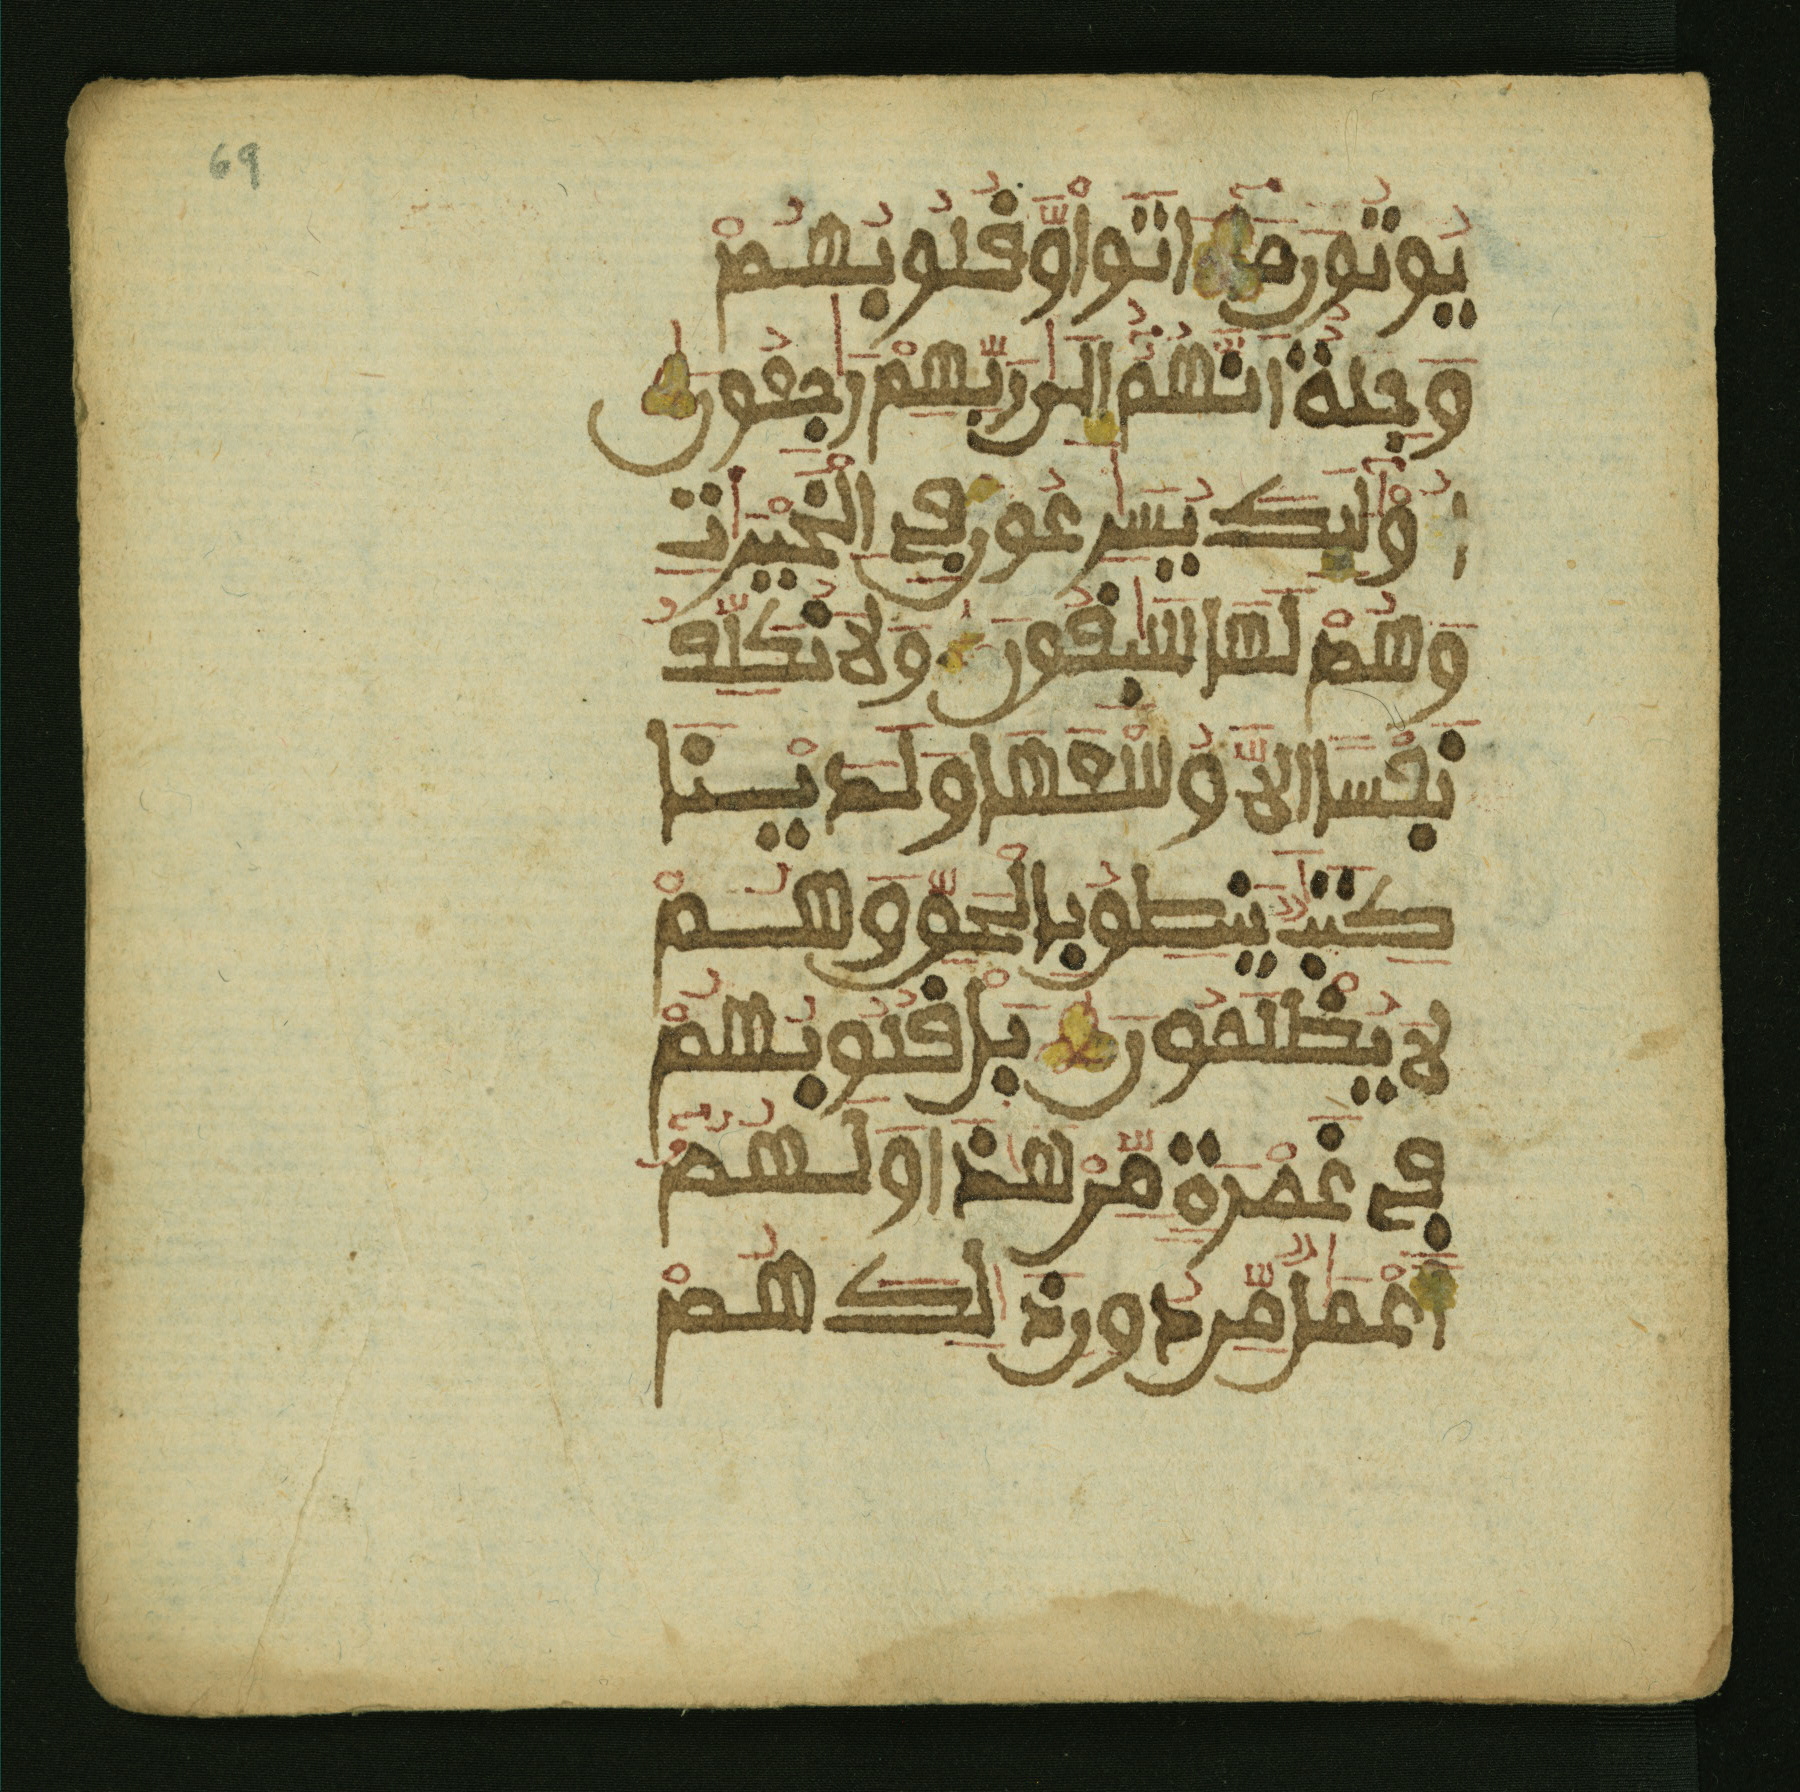 69
يُوتُونَ مَا ءَاتَوا وَّقُلُوبُهُمْ
وَجِلَةٌ أَنَّهُمُ إِلَىٰ رَبِّهِمْ رَٰجِعُونَ
أُوْلَٰٓئِكَ يُسَٰرِعُونَ فِي الْخَيْرَٰتِ
وَهُمْ لَهَا سَٰبِقُونَ وَلَا نُكَلِّفُ
نَفْسًا اِلَّا وُسْعَهَا وَلَدَيْنَا
كِتَٰبٌ يَنطِقُ بِالْحَقِّ وَهُمْ
لَا يُظْلَمُونَ بَلْ قُلُوبُهُمْ
فِي غَمْرَةٍ مِّنْ هَٰذَا وَلَهُمُۥٓ
أَعْمَٰلٌ مِّن دُونِ ذَٰلِكَ هُمْ